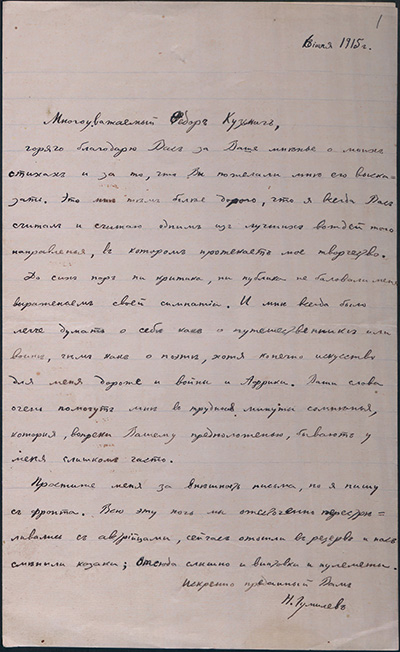 1
6 iюля 1915 г.
Многоуважаемый Ѳедоръ Кузьмичъ,
горячо благодарю Васъ за Ваше мнѣнье о моихъ
стихахъ и за то, что Вы пожелали мнѣ его выска-
зать. Это мнѣ тѣмъ болѣе дорого, что я всегда Васъ
считалъ и считаю однимъ изъ лучшихъ вождей того
направленья, въ которомъ протекаетъ мое творчество.
До сихъ поръ ни критика, ни публика не баловали меня
выраженьемъ своей симпатiи. И мнѣ всегда было
легче думать о себѣ какъ о путешественникѣ или
воинѣ, чѣмъ какъ о поэтѣ, хотя конечно искусство
для меня дороже и войны и Африки. Ваши слова
очень помогутъ мнѣ въ трудныя минуты сомнѣнья,
которыя, вопреки Вашему предположенью, бываютъ у
меня слишкомъ часто.
Простите меня за внѣшность письма, но я пишу
съ фронта. Всю эту ночь мы ожесточенно перестрѣ=
ливались съ австрiйцами, сейчасъ отошли въ резервъ и насъ
смѣнили казаки; отсюда слышно и винтовки и пулеметы.
Искренно преданный Вамъ
Н. Гумилевъ